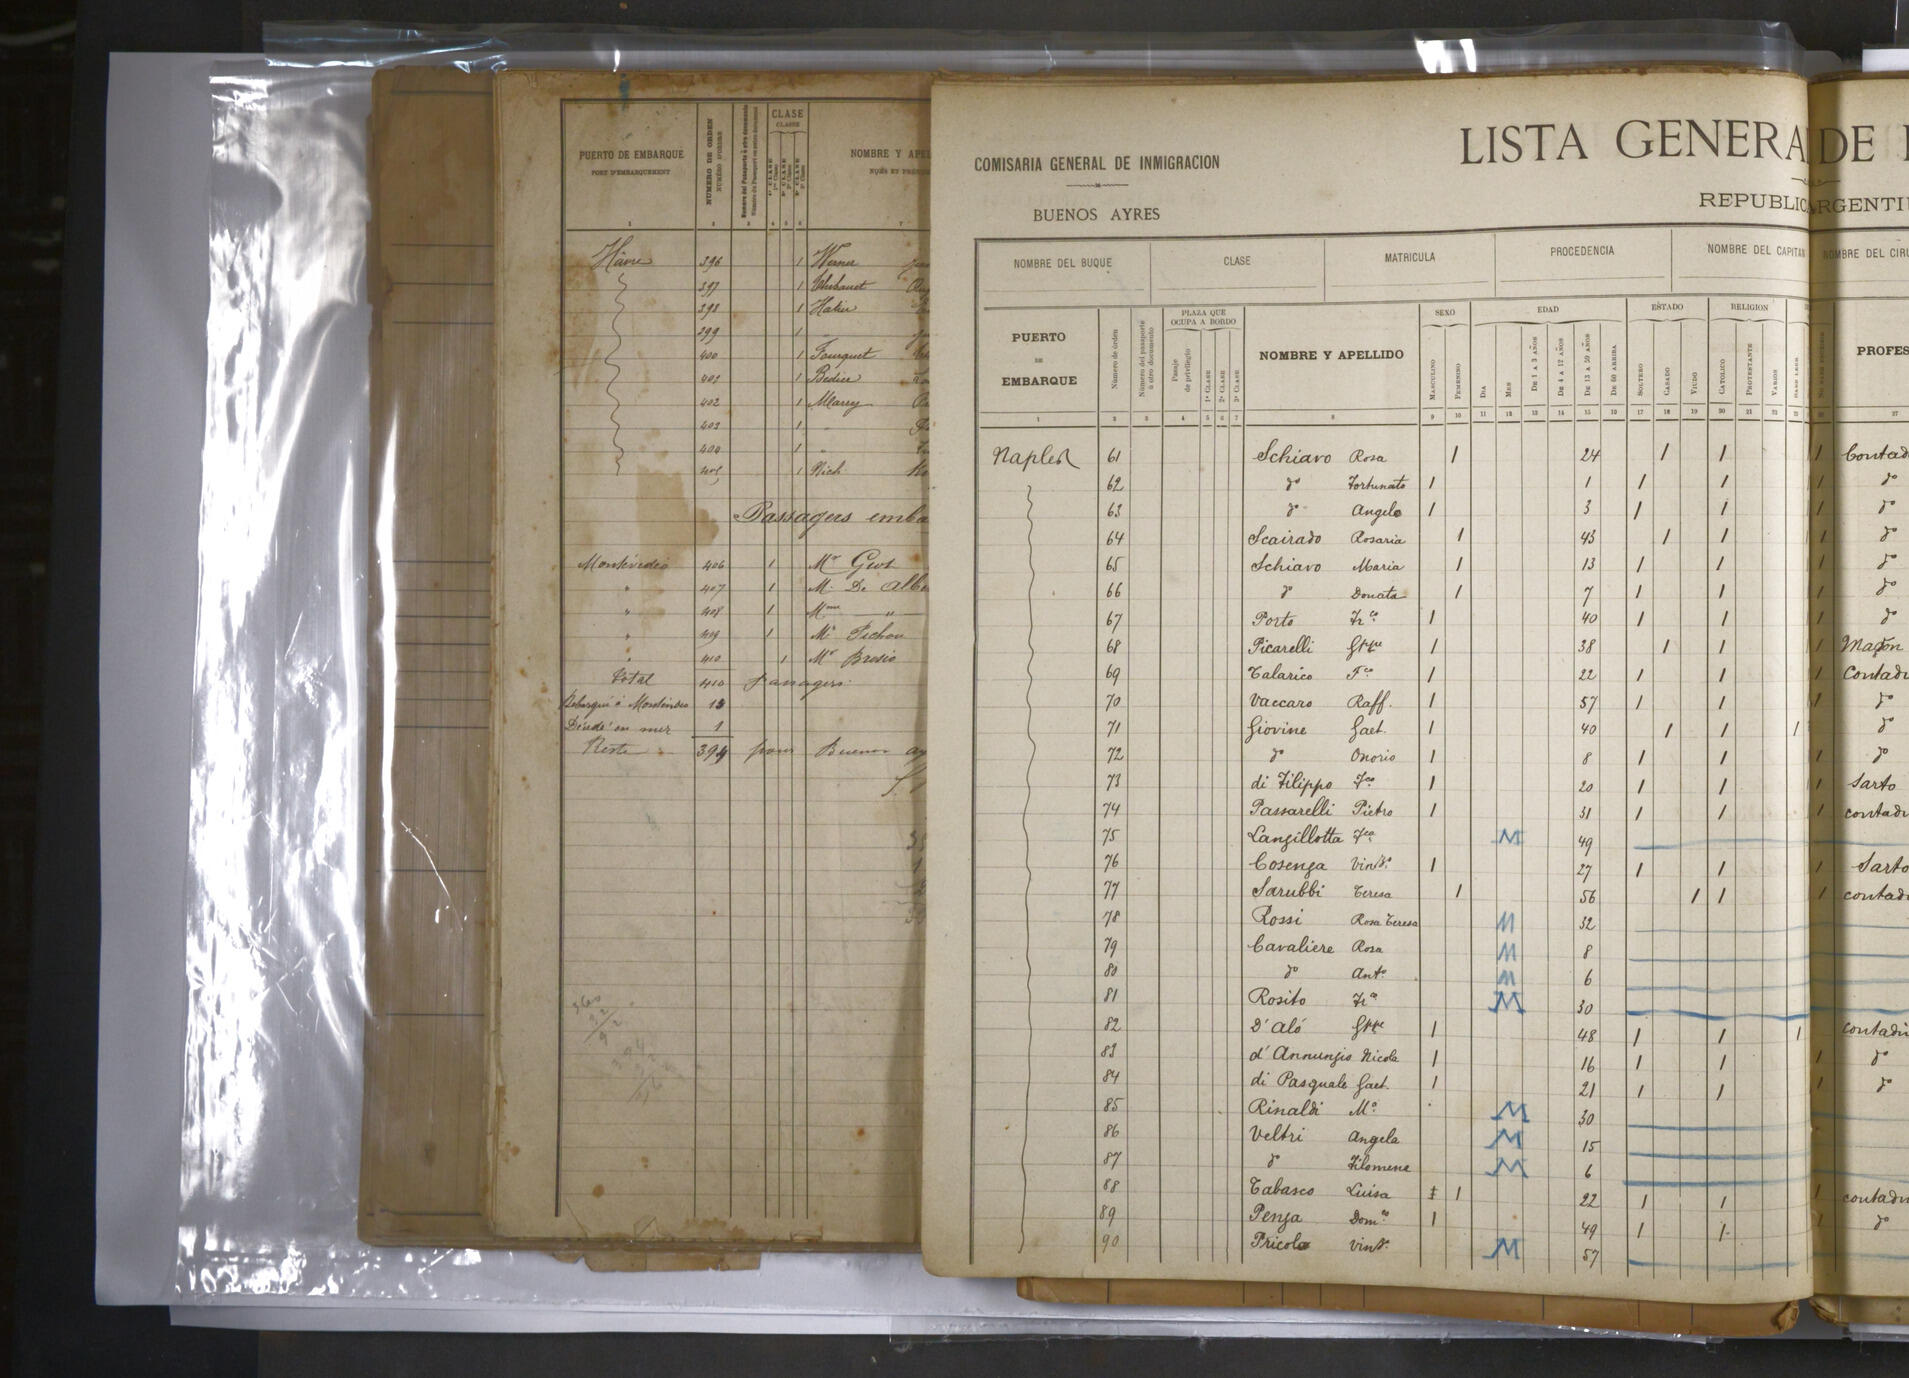 PUERTO DE EMBARQUE
PORT D'EMBARQUEMENT
NUMERO DE ORDEN
NUMÉRO D'ORDRE
CLASE
CLASSE
1ª CLASE
2ª CLASE
3ª CLASE
NOMBRE Y APEL
Hâvre 396 1 Werner
397 1 Thibaut
398 1
399 1 "
400 1 Fourquet
402 1
402 1 Marry
403 1 "
404 1 "
405 1 Rich
Passagers emba
Montévidéo 406 1 Mr
" 407 1 M. De Albe
" 408 1 Mme "
" 409 1 Mr Pichon
" 410 1 Mr Bresio
Total 410 passagers
Debarqué à Montévideo
Décédé en mer 1
Reste 394 pour Buenos ay
COMISARIA GENERAL DE INMIGRACION
BUENOS AYRES
LISTA GENERA DE
REPUBLICA ARGENTI
NOMBRE DEL BUQUE CLASE MATRICULA PROCEDENCIA NOMBRE DEL CAPITAN NOMBRE DEL CIRU
PUERTO DE EMBARQUE
Número de órden
Número del pasaporte ú otro documento
PLAZA QUE OCUPA A BORDO
Pasaje de privilegio
1ª CLASE
2ª CLASE
3ª CLASE
NOMBRE Y APELLIDO
SEXO
MASCULINO
FEMENINO
EDAD
DIA
MES
DE 1 A 3 AÑOS
DE 4 A 12 AÑOS
DE 13 A 59 AÑOS
DE 60 ARRIBA
ESTADO
SOLTERO
CASADO
VIUDO
RELIGION
CATOLICO
PROTESTANTE
VARIOS
SABE LEER
PROFES
1 2 3 4 5 6 7 8 9 10 11 12 13 14 15 16 17 18 19 20 21 22 23 27
Naples 61 Schiavo Rosa 1 24 1 1 1 Contad
62 do Fortunato 1 1 1 1 1 do
63 do Angelo 1 3 1 1 1 do
64 Scairado Rosaria 1 43 1 1 1 do
65 Schiavo Maria 1 13 1 1 1 do
66 do Donata 1 7 1 1 1 do
67 Porto Frco 1 40 1 1 1 do
68 Picarelli Gppe 1 38 1 1 1 Maçon
69 Talarico Fco 1 22 1 1 1 Contadi
70 Vaccaro Raff. 1 57 1 1 1 do
71 Giovine Gaet. 1 40 1 1 1 do
72 do Onorio 1 8 1 1 1 do
73 di Filippo Fco 1 20 1 1 1 Sarto
74 Passarelli Pietro 1 31 1 1 1 contadi
75 Langillotta Fco M 49
76 Cosenza Vinzo 1 27 1 1 1 Sarto
77 Sarubbi Teresa 1 56 1 1 1 contadi
78 Rossi Rosa Teresa M 32
79 Cavaliere Rosa M 8
80 do Anto M 6
81 Rosito Fra M 30
82 D'Aló Gppe 1 48 1 1 1 contadi
83 d'Annunzio Nicola 1 16 1 1 1 do
84 di Pasquale Gaet. 1 21 1 1 1 do
85 Rinaldi Ma M 30
86 Veltri Angela M 15
87 do Filomena M 6
88 Tabasco Luisa 1 22 1 1 1 contadi
89 Penza Domco 1 49 1 1 do
90 Pricolo Vinzo M 57